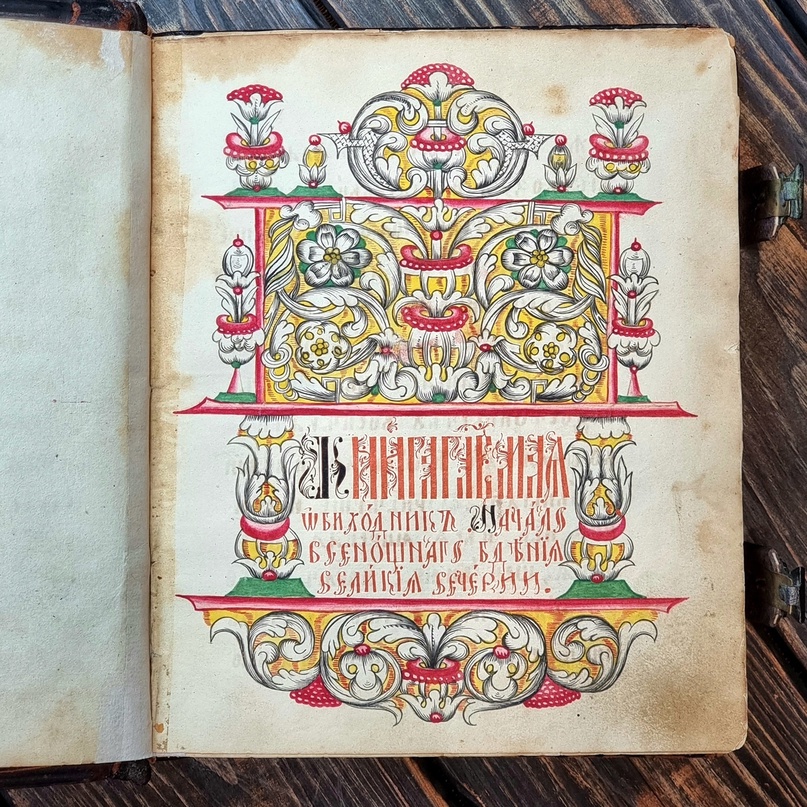 Кни́га гл҃емая
ѡбихо́дникъ. Нача́ло
всено́щнаго бдѣ́нїѧ
вели́кїѧ вече́рни.